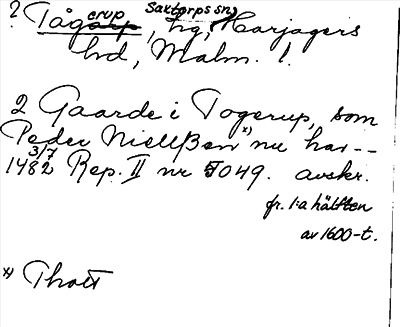 ? Tågarp erup, hg, Saxtorps sn, Harjagers
hd, Malm. l.
2 Gaarde i Togerup, som
Peder Nielßen x) nu har --
3/7
1482 Rep. II nr 5049. avskr.
fr. 1:a hälften
av 1600-t.
x) Thott